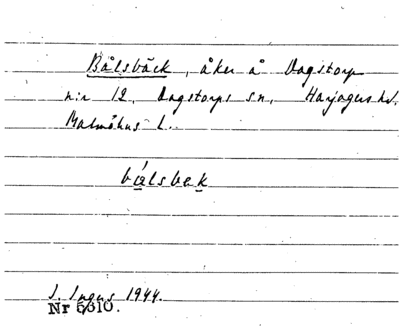 Bålsbäck, åker å Dagstorp
n:r 12, Dagstorps sn, Harjagers hd.
Malmöhus l.
bálsbek
I. Ingers 1944.
Nr 5310.